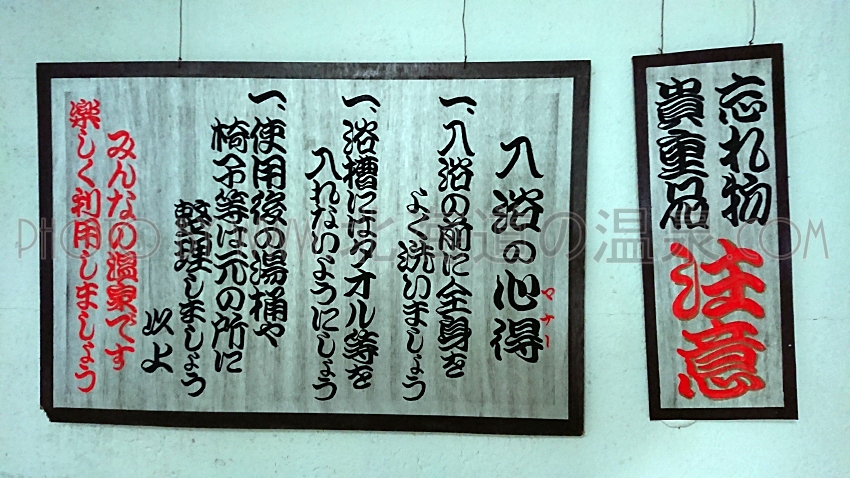 忘れ物
貴重品
注意
入浴の心得
マナー
一、入浴の前に全身を
よく洗いましょう
一、浴槽にはタオル等を
入れないようにしょう
一、使用後の湯桶や
椅子等は元の所に
整理しましょう
以上
みんなの温泉です
楽しく利用しましょう
PHOTO WWW.北海道の温泉.COM